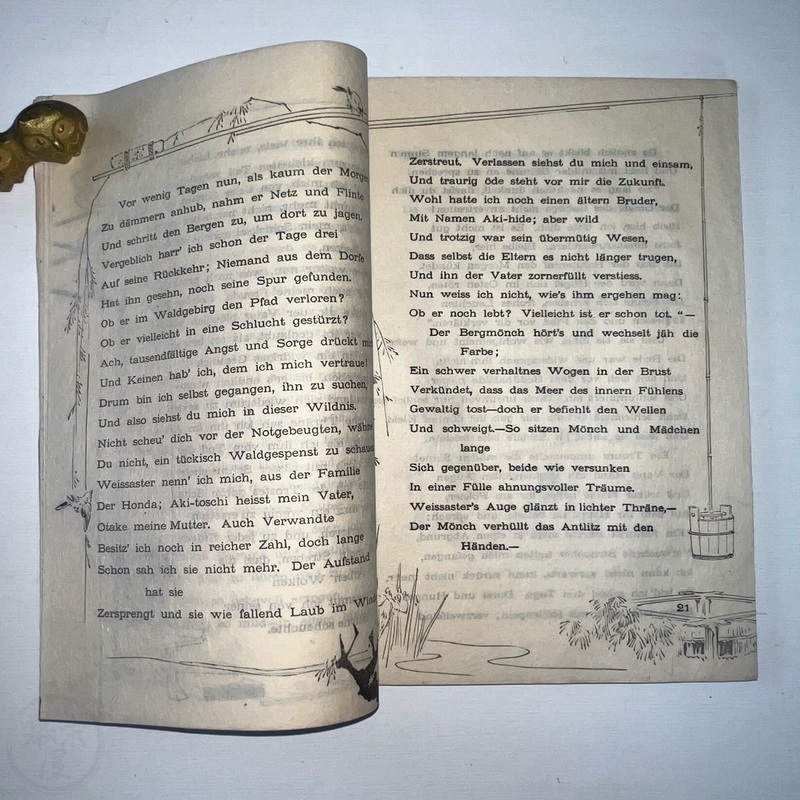 Vor wenig Tagen nun, als kaum der Morgen
Zu dämmern anhub, nahm er Netz und Flinte
Und schritt den Bergen zu, um dort zu jagen.
Vergeblich harr' ich schon der Tage drei
Auf seine Rückkehr; Niemand aus dem Dorfe
Hat ihn gesehn, noch seine Spur gefunden.
Ob er im Waldgebirg den Pfad verloren?
Ob er vielleicht in eine Schlucht gestürzt?
Ach, tausendfältige Angst und Sorge drückt
Und Keinen hab' ich, dem ich mich vertraue!
Drum bin ich selbst gegangen, ihn zu suchen,
Und also siehst du mich in dieser Wildnis.
Nicht scheu' dich vor der Notgebeugten,
Du nicht, ein tückisch Waldgespenst zu
Weissaster nenn' ich mich, aus der Familie
Der Honda; Aki-toschi heisst mein Vater,
Otake meine Mutter. Auch Verwandte
Besitz' ich noch in reicher Zahl, doch lange
Schon sah ich sie nicht mehr. Der Aufstand
hat sie
Zersprengt und sie wie fallend Laub im
Zerstreut. Verlassen siehst du mich und einsam,
Und traurig öde steht vor mir die Zukunft.
Wohl hatte ich noch einen ältern Bruder,
Mit Namen Aki-hide; aber wild
Und trotzig war sein übermütig Wesen,
Dass selbst die Eltern es nicht länger trugen,
Und ihn der Vater zornerfüllt verstiess.
Nun weiss ich nicht, wie's ihm ergehen mag:
Ob er noch lebt? Vielleicht ist er schon tot. "—
Der Bergmönch hört's und wechselt jäh die
Farbe;
Ein schwer verhaltnes Wogen in der Brust
Verkündet, dass das Meer des innern Fühlens
Gewaltig tost—doch er befiehlt den Wellen
Und schweigt.—So sitzen Mönch und Mädchen
lange
Sich gegenüber, beide wie versunken
In einer Fülle ahnungsvoller Träume.
Weissaster's Auge glänzt in lichter Thräne,—
Der Mönch verhüllt das Antlitz mit den
Händen.—
21